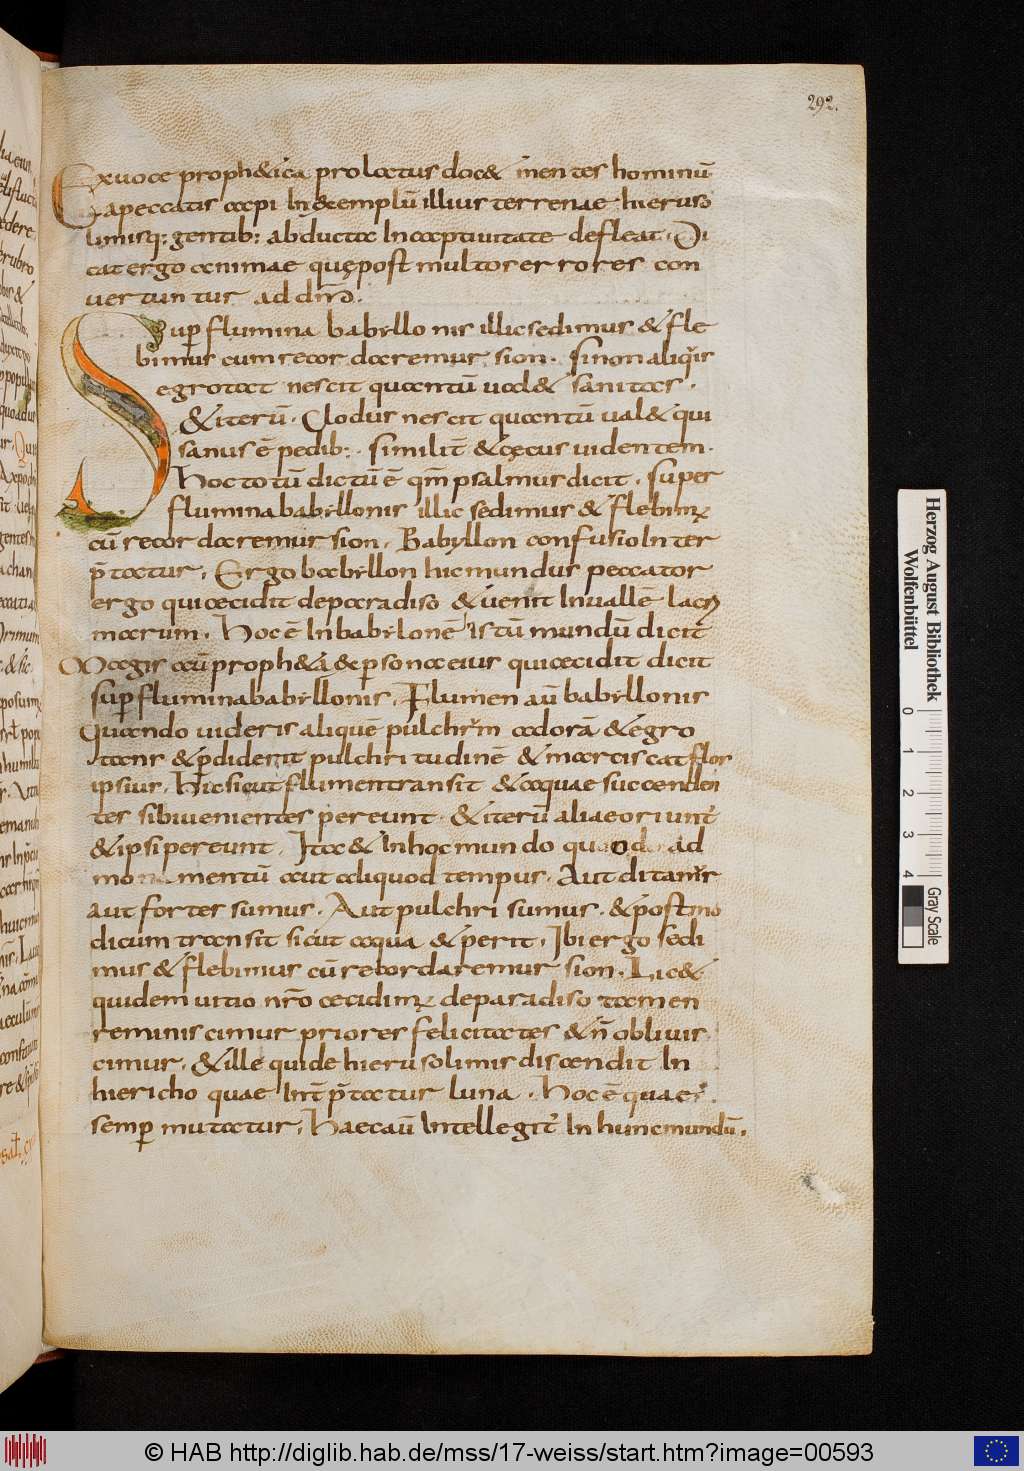 292.
Ex uoce proph&ica prolatus doc& mentes hominū
a peccatis capi In exemplū illius terrenae hieruso
limisq; gentib; abducta In captiuitate defleat. Di
cat ergo animae quę post multos errores con
uertuntur ad dn̄m.
Sup flumina babyllonis illic sedimus & fle
bimus cum recordaremur sion. si non aliquis
egrotat nescit quantū ual& sanitas.
& iterū. Clodus nescit quantū ual& qui
sanus ē pedib;. similit̄ & cęcus uidentem.
Hoc totū dictū ē qm̄ psalmus dicit. super
flumina babyllonis illic sedimus & flebim;
cū recordaremur sion. Babyllon confusio Inter
p̄tatur. Ergo babyllon hic mundus peccator
ergo qui cecidit de paradiso & uenit In uallē lacri
marum. Hoc ē In babylonē istū mundū dicit
Magis aū proph&a & persona eius qui cecidit dicit
sup flumina babyllonis. Flumen aū babyllonis
Quando uideris aliquē pulchrum adorā & egro
tans & pdiderit pulchritudinē & marciscat flos
ipsius. Hic sicut flumen transit & aquae succeden
tes sibi uenientes pereunt. & iterū aliae oriunt̄
& ipsi pereunt. Ita & In hoc mundo quando ad
mo mentū aut aliquod tempus. Aut ditamur
aut fortes sumus. Aut pulchri sumus. & post mo
dicum transit sicut aqua & perit. Ibi ergo sedi
mus & flebimus cū recordaremur sion. Lic&
quidem uitio nr̄o cecidim; de paradiso tamen
reminiscimur priores felicitates & n̄ obliuis
cimur. & ille quide hierusolimis discendit In
hiericho quae Int̄ p̄tatur luna. Hoc ē quae
semp mutatur. Haec aū Intellegit̄ In hunc mundū.
Herzog August Bibliothek
Wolfenbüttel
0 1 2 3 4
Gray Scale
© HAB http://diglib.hab.de/mss/17-weiss/start.htm?image=00593